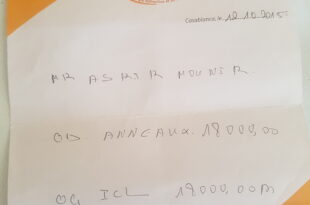 Casablanca, le 12.10.2015
MR ASRIR MOUNIR.
OD. ANNEAUX. 18000,00
OG ICL 18000,00